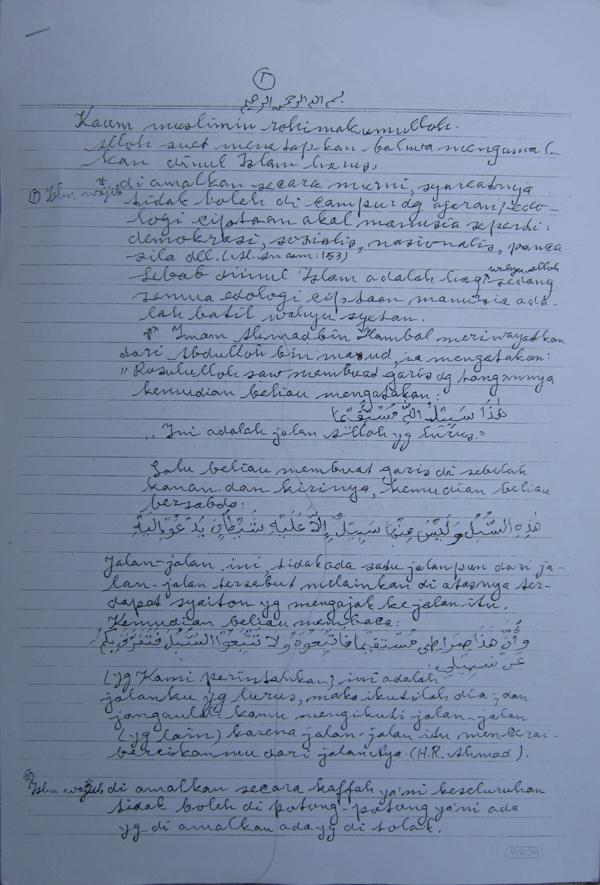 1
بسم الله الرحمن الرحيم
Kaum muslimin rohimakumulloh.
Alloh swt menetapkan bahwa mengamal-
kan dinul Islam harus,
① Islm wajib di amalkan secara murni, syareatnya
tidak boleh di campur dg ajaran/edo-
logi ciptaan akal manusia seperti:
demokrasi, sosialis, nasionalis, panca
sila dll. (Al. An am: 153)
Sebab dinul Islam adalah haq wahyu Alloh sedang
semua edologi ciptaan manusia ada-
lah batil wahyu syetan.
Imam Ahmad bin Hambal meriwayatkan
dari Abdulloh bin mas,ud, ia mengatakan:
"Rosululloh saw membuat garis dg tangannya
kemudian beliau mengatakan:
هٰذَا سَبِيْلُ اللهِ مُسْتَقِيْمًا
"Ini adalah jalan Alloh yg lurus."
Lalu beliau membuat garis di sebelah
kanan dan kirinya, kemudian beliau
bersabda:
هٰذِهِ السُّبُلُ وَلَيْسَ مِنْهَا سَبِيْلٌ إِلَّا عَلَيْهِ شَيْطَانٌ يَدْعُوْ إِلَيْهِ
Jalan-jalan ini, tidak ada satu jalan pun dari ja-
lan-jalan tersebut melainkan di atasnya ter-
dapat syaiton yg mengajak ke jalan itu.
Kemudian beliau membaca:
وَأَنَّ هَذَا صِرَاطِي مُسْتَقِيْمًا فَاتَّبِعُوْهُ وَلَا تَتَّبِعُوا السُّبُلَ فَتَفَرَّقَ بِكُمْ
عَنْ سَبِيْلِهِ.
(yg Kami perintahkan) ini adalah
jalanku yg lurus, maka ikutilah dia; dan
janganlah kamu mengikuti jalan-jalan
(yg lain) karena jalan-jalan itu mencerai-
beraikanmu dari jalanNya. (H.R. Ahmad).
② Islm wajib di amalkan secara kaffah ya'ni keseluruhan
tidak boleh di potong-potong ya'ni ada
yg di amalkan ada yg di tolak.
VISION